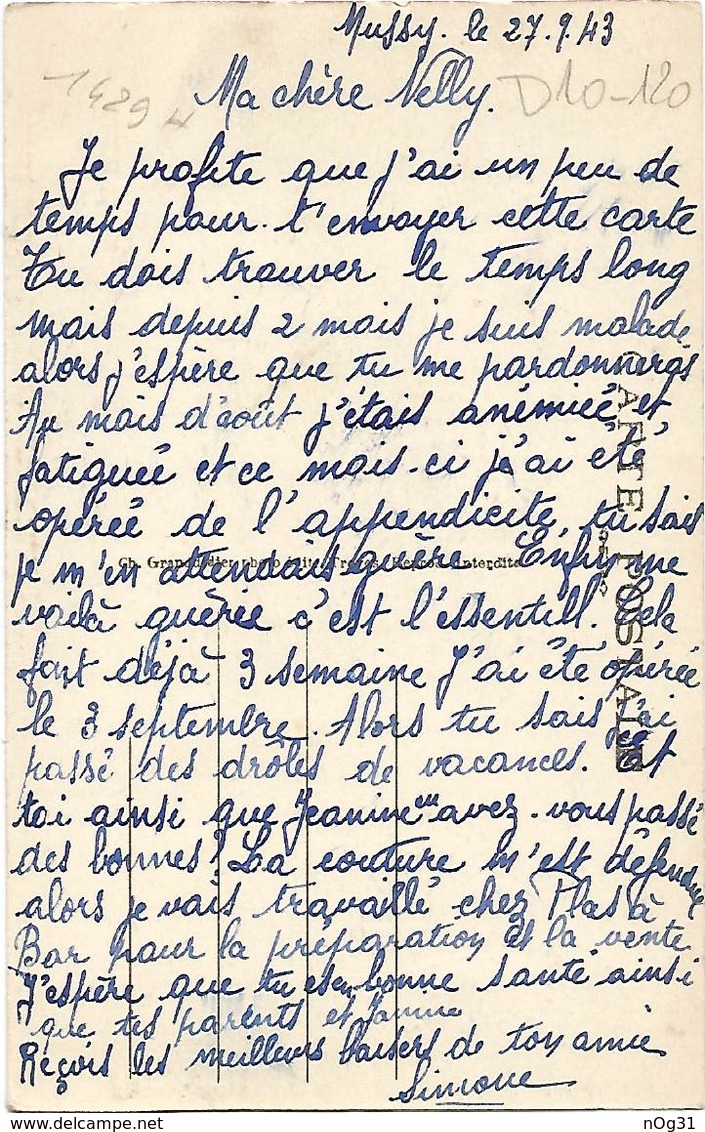 Mussy. le 27.9.43
1429
D10-120
Ma chère Nelly.
Je profite que j'ai un peu de
temps pour. t'envoyer cette carte
Tu dois trouver le temps long
mais depuis 2 mois je suis malade
alors j'espère que tu me pardonneras
Au mois d'août j'étais anémiée et
fatiguée et ce mois-ci j'ai été
opérée de l'appendicite, tu sais
je m'en attendais guère. Enfin me
voilà guérie c'est l'essentill. Cela
fait déjà 3 semaine j'ai été opérée
le 3 septembre. Alors tu sais j'ai
passé des drôles de vacances. Et
toi ainsi que Jeanine avez-vous passé
des bonnes? La couture m'est défendue
alors je vais travaillé chez Plas à
Bar pour la préparation et la vente
J'espère que tu es en bonne santé ainsi
que tes parents et Janine
Reçois les meilleurs baisers de ton amie
Simone
CARTE POSTALE
Ch. Grandidier, photo édit. Troyes. Reprod. Interdite
nOg31